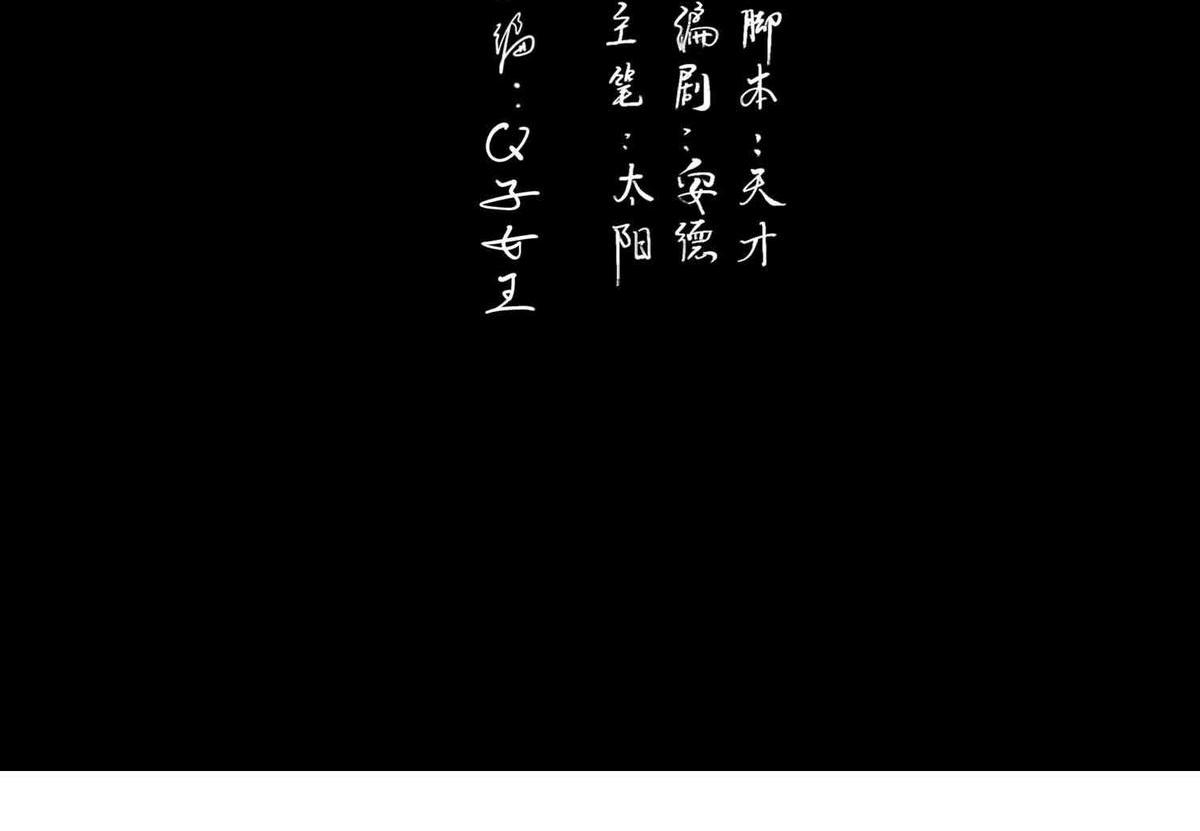 脚本：天才
编剧：安德
主笔：太阳
编：Q子女王